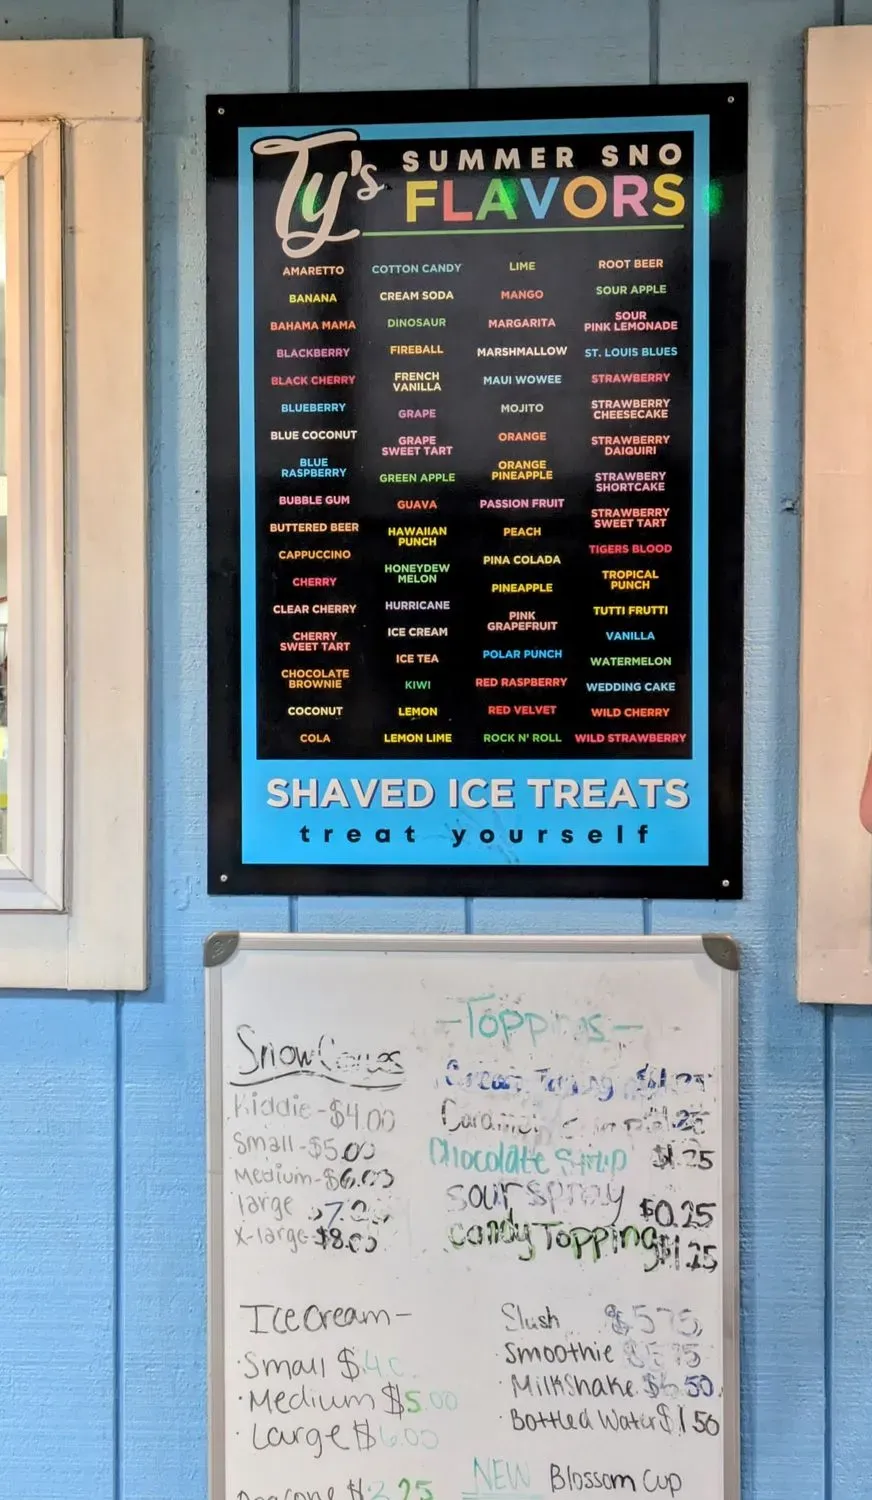 Ty's SUMMER SNO
FLAVORS
AMARETTO
BANANA
BAHAMA MAMA
BLACKBERRY
BLACK CHERRY
BLUEBERRY
BLUE COCONUT
BLUE
RASPBERRY
BUBBLE GUM
BUTTERED BEER
CAPPUCCINO
CHERRY
CLEAR CHERRY
CHERRY
SWEET TART
CHOCOLATE
BROWNIE
COCONUT
COLA
COTTON CANDY
CREAM SODA
DINOSAUR
FIREBALL
FRENCH
VANILLA
GRAPE
GRAPE
SWEET TART
GREEN APPLE
GUAVA
HAWAIIAN
PUNCH
HONEYDEW
MELON
HURRICANE
ICE CREAM
ICE TEA
KIWI
LEMON
LEMON LIME
LIME
MANGO
MARGARITA
MARSHMALLOW
MAUI WOWEE
MOJITO
ORANGE
ORANGE
PINEAPPLE
PASSION FRUIT
PEACH
PINA COLADA
PINEAPPLE
PINK
GRAPEFRUIT
POLAR PUNCH
RED RASPBERRY
RED VELVET
ROCK N' ROLL
ROOT BEER
SOUR APPLE
SOUR
PINK LEMONADE
ST. LOUIS BLUES
STRAWBERRY
STRAWBERRY
CHEESECAKE
STRAWBERRY
DAIQUIRI
STRAWBERY
SHORTCAKE
STRAWBERRY
SWEET TART
TIGERS BLOOD
TROPICAL
PUNCH
TUTTI FRUTTI
VANILLA
WATERMELON
WEDDING CAKE
WILD CHERRY
WILD STRAWBERRY
SHAVED ICE TREATS
treat yourself
Snow Cones
Kiddie - $4.00
Small - $5.00
Medium - $6.00
large
X-large - $8.00
- Toppings -
Cream
Caramel
Chocolate $1.25
sour spray $0.25
Candy Topping $1.25
Ice cream -
· Small
· Medium $5.00
· Large $6.00
Slush $5.75
· Smoothie $5.75
· Milkshake $6.50
· Bottled Water $1.50
NEW Blossom Cup